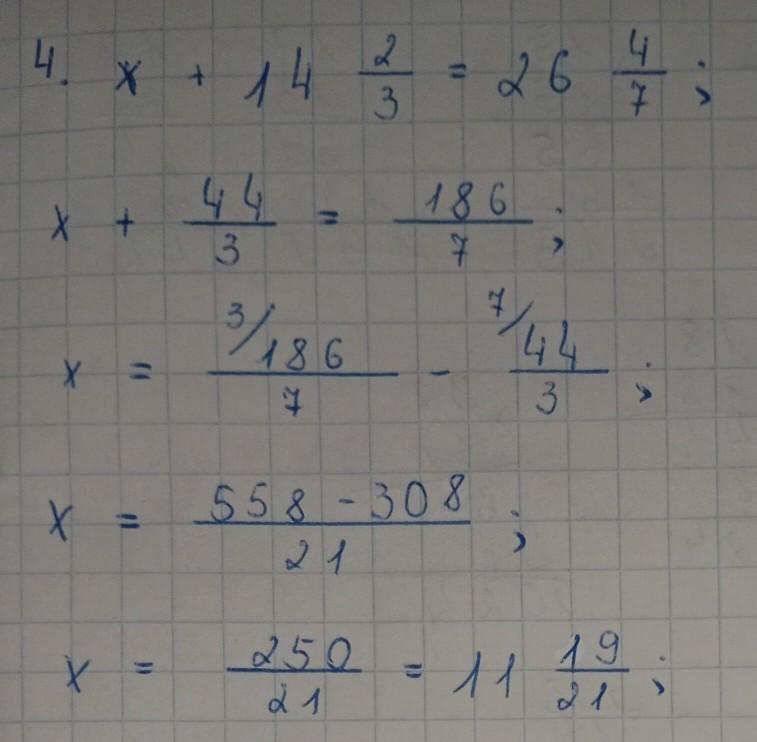 4. x + 14 2/3 = 26 4/7 ;
x + 44/3 = 186/7 ;
x = 3/186/7 - 7/44/3 ;
x = 558 - 308/21 ;
x = 250/21 = 11 19/21 ;